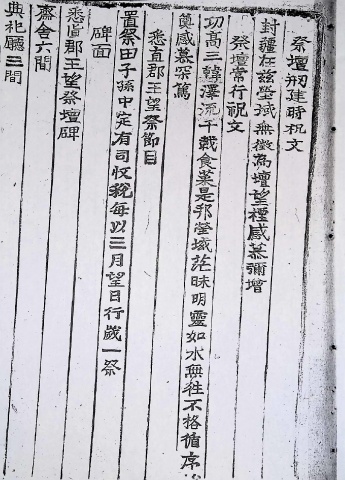 祭壇刱建時祝文
封疆在玆塋域無徵為壇望禋感慕彌增
祭壇常行祝文
功高三韓澤流千載食菜是邦塋域茫昧明靈如水無往不格循序
奠感慕罙篤
悉直郡王望祭節目
置祭田子孫中定有司收稅每以三月望日行歲一祭
碑面
悉直郡王望祭壇碑
齋舍六間
典祀廳三間